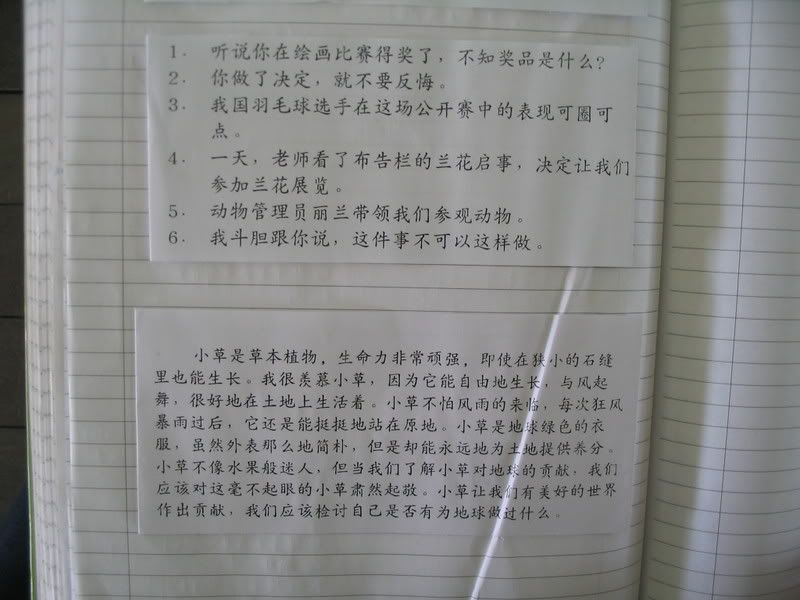 1. 听说你在绘画比赛得奖了，不知奖品是什么？
2. 你做了决定，就不要反悔。
3. 我国羽毛球选手在这场公开赛中的表现可圈可
点。
4. 一天，老师看了布告栏的兰花启事，决定让我们
参加兰花展览。
5. 动物管理员丽兰带领我们参观动物。
6. 我斗胆跟你说，这件事不可以这样做。
小草是草本植物，生命力非常顽强，即使在狭小的石缝
里也能生长。我很羡慕小草，因为它能自由地生长，与风起
舞，很好地在土地上生活着。小草不怕风雨的来临，每次狂风
暴雨过后，它还是能挺挺地站在原地。小草是地球绿色的衣
服，虽然外表那么地简朴，但是却能永远地为土地提供养分。
小草不像水果般迷人，但当我们了解小草对地球的贡献，我们
应该对这毫不起眼的小草肃然起敬。小草让我们有美好的世界
作出贡献，我们应该检讨自己是否有为地球做过什么。